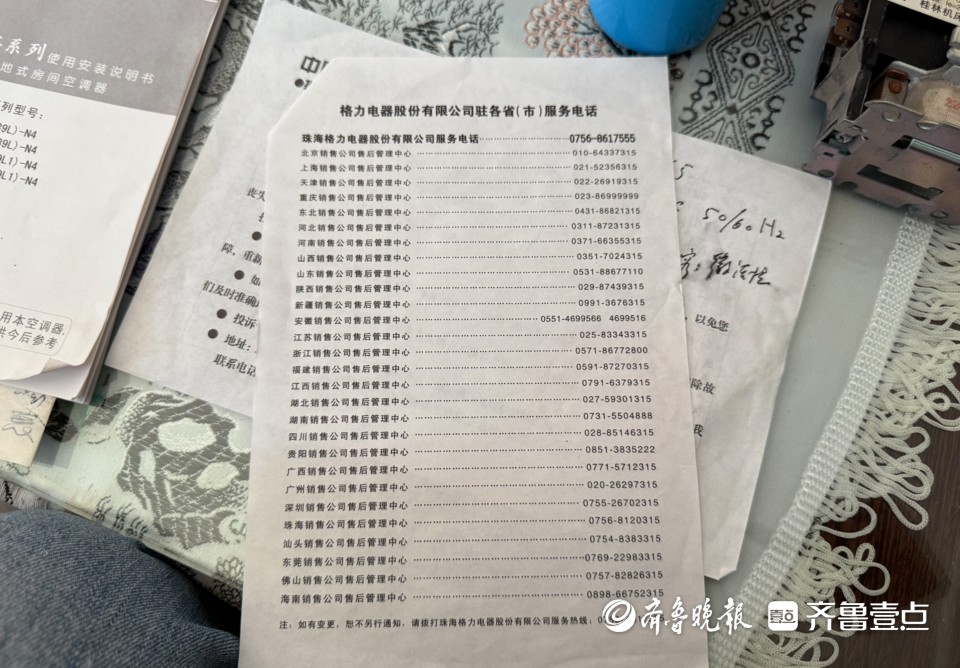 系列使用安装说明书
地式房间空调器
列型号:
9L)-N4
9L)-N4
9L1)-N4
9L1)-N4
用本空调器,
供今后参考
丧失
障,重新
●如
们及时准确
●投诉
●地址:
联系电话
格力电器股份有限公司驻各省(市)服务电话
珠海格力电器股份有限公司服务电话 0756-8617555
北京销售公司售后管理中心 010-64337315
上海销售公司售后管理中心 021-52356315
天津销售公司售后管理中心 022-26919315
重庆销售公司售后管理中心 023-86999999
东北销售公司售后管理中心 0431-86821315
河北销售公司售后管理中心 0311-87231315
河南销售公司售后管理中心 0371-66355315
山西销售公司售后管理中心 0351-7024315
山东销售公司售后管理中心 0531-88677110
陕西销售公司售后管理中心 029-87439315
新疆销售公司售后管理中心 0991-3676315
安徽销售公司售后管理中心 0551-4699566 4699516
江苏销售公司售后管理中心 025-83343315
浙江销售公司售后管理中心 0571-86772800
福建销售公司售后管理中心 0591-87270315
江西销售公司售后管理中心 0791-6379315
湖北销售公司售后管理中心 027-59301315
湖南销售公司售后管理中心 0731-5504888
四川销售公司售后管理中心 028-85146315
贵阳销售公司售后管理中心 0851-3835222
广西销售公司售后管理中心 0771-5712315
广州销售公司售后管理中心 020-26297315
深圳销售公司售后管理中心 0755-26702315
珠海销售公司售后管理中心 0756-8120315
汕头销售公司售后管理中心 0754-8383315
东莞销售公司售后管理中心 0769-22983315
佛山销售公司售后管理中心 0757-82826315
海南销售公司售后管理中心 0898-66752315
注:如有变更,恕不另行通知,请拨打珠海格力电器股份有限公司服务热线:
50/60Hz
,以免您
除故
我
桂林机床
齐鲁晚报
壹点
齐鲁壹点